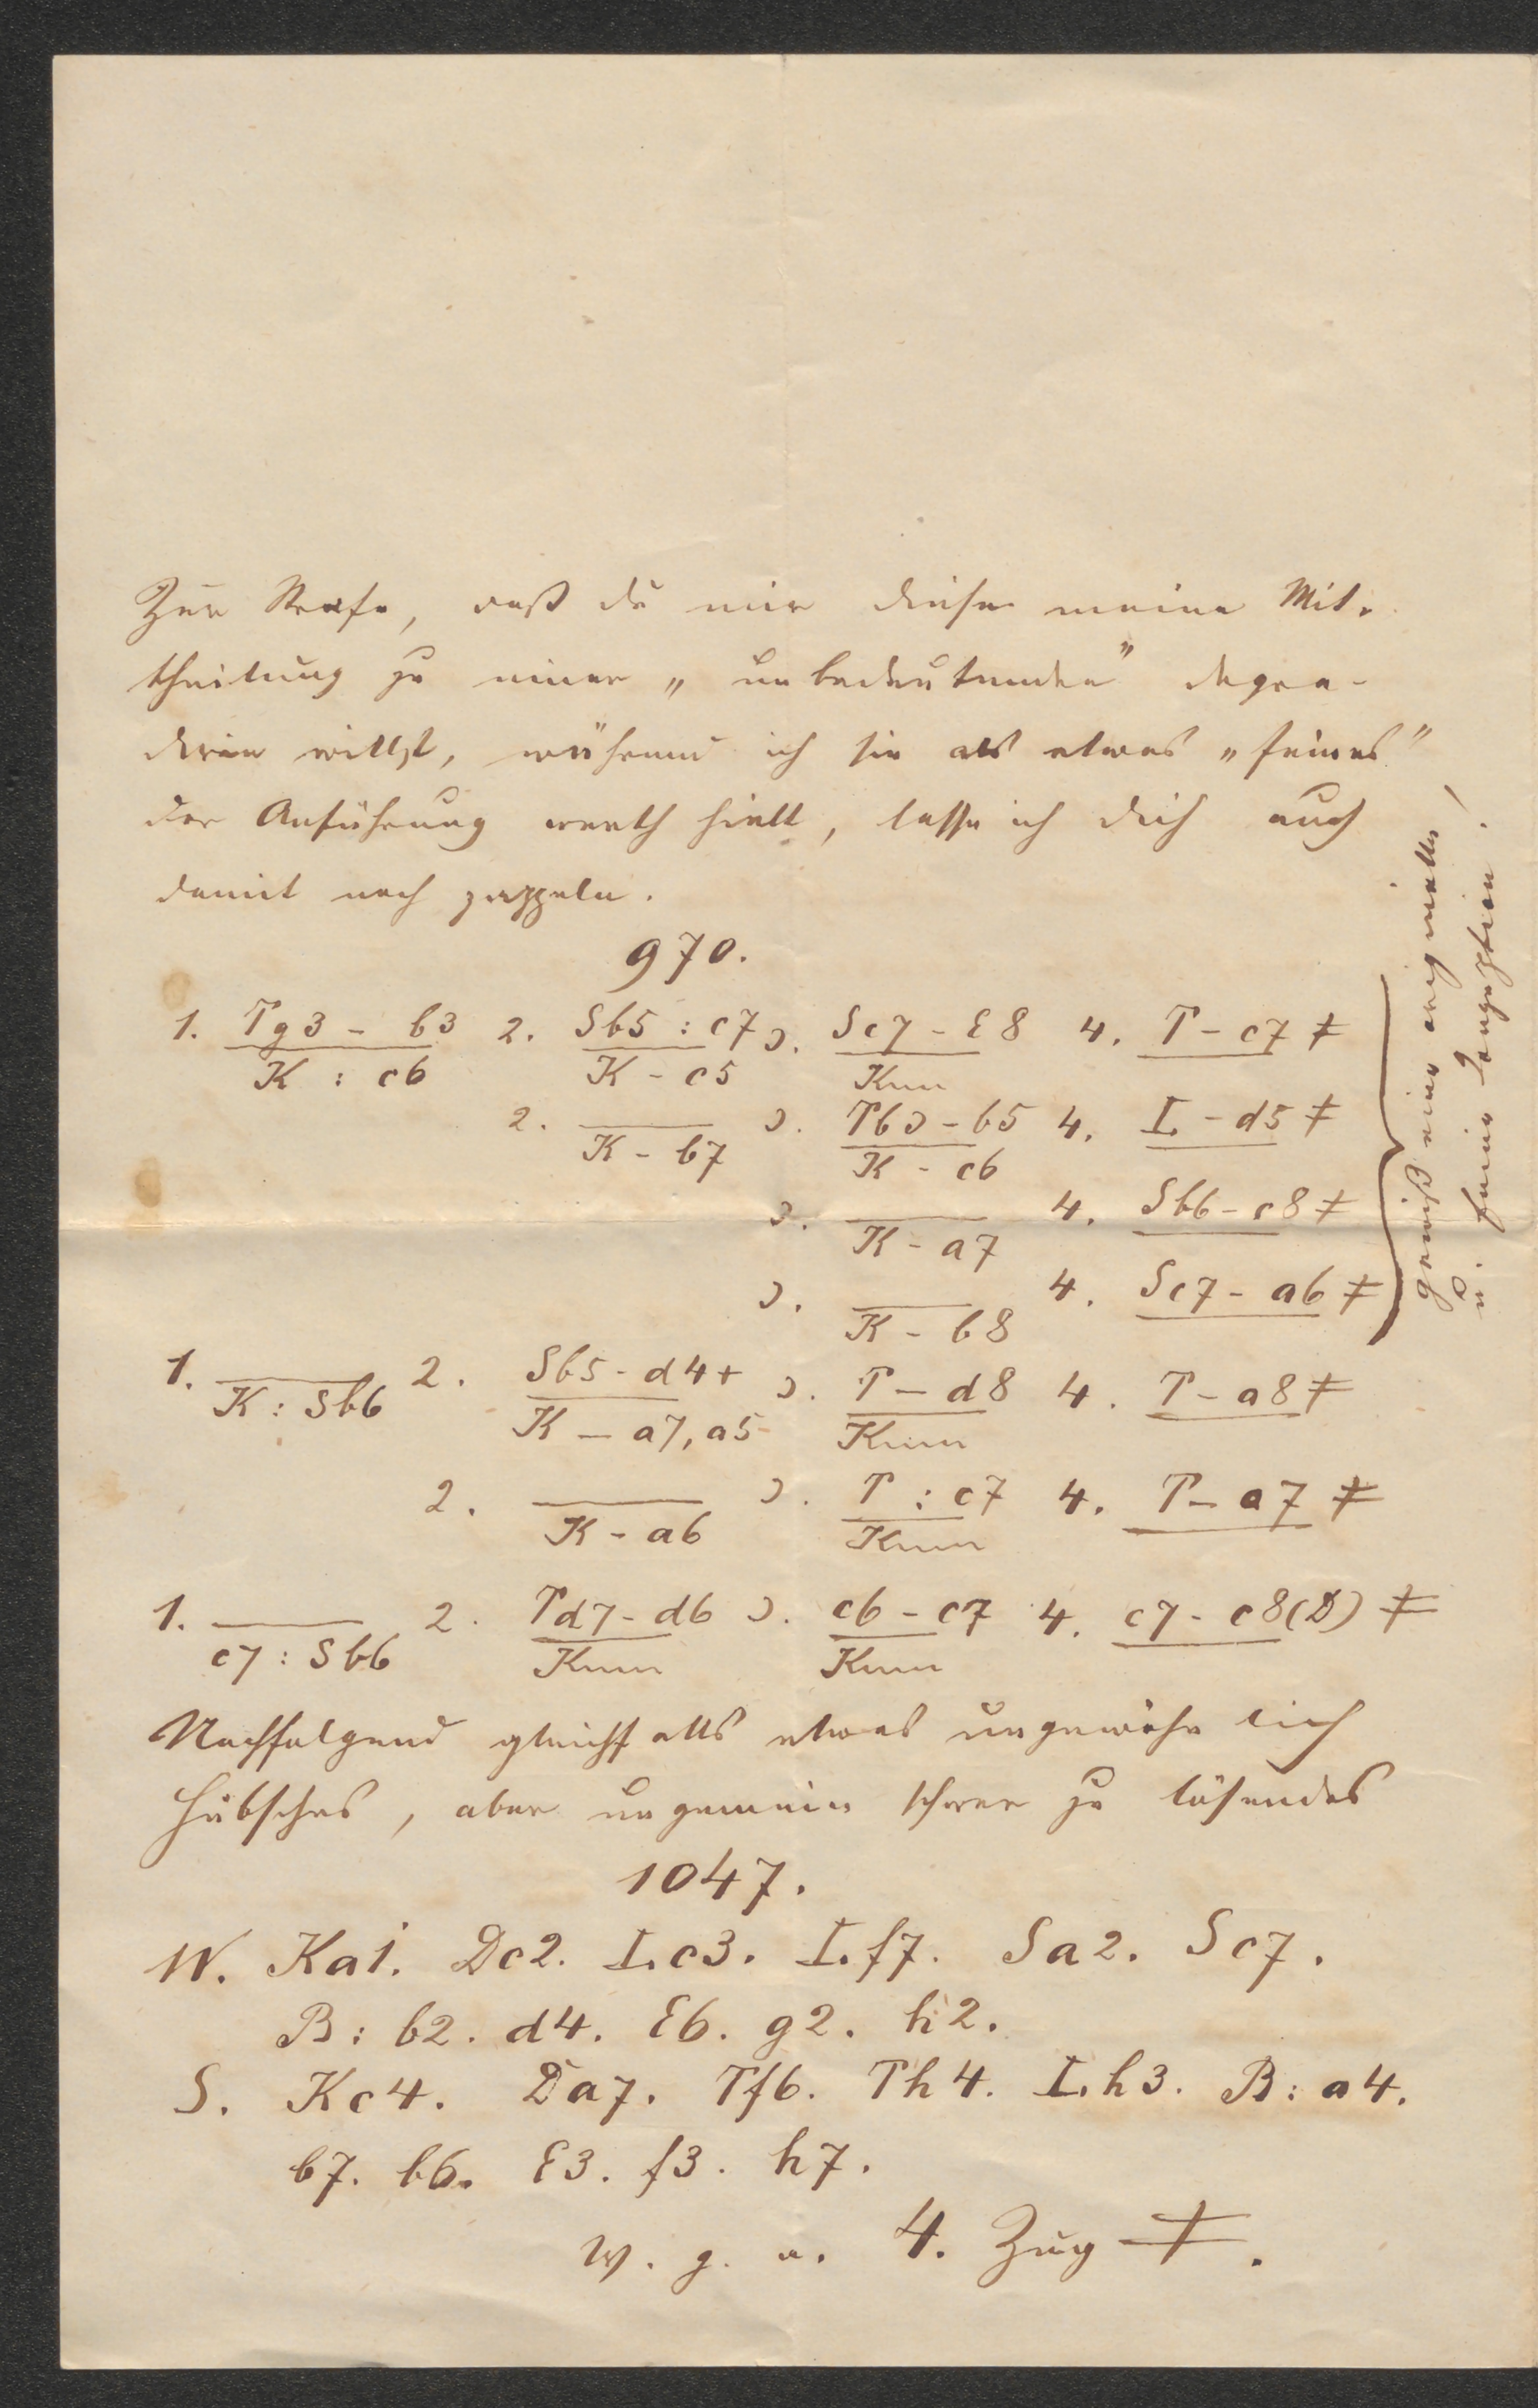 Zur Strafe, daß du mir diese meine Mit-
theilung zu einer „unbedeutenden" degra-
diren willst, während ich sie als etwas „feines"
der Anführung werth hielt, lasse ich dich auch
damit noch zappeln.
970.
1. Tg3 - b3 / K : c6 2. Sb5 : c7 / K - c5 3. Sc7 - E8 / K~ 4. T - c7 ≠
2. ___ / K - b7 3. Tb3 - b5 / K - c6 4. L - d5 ≠
3. ___ / K - a7 4. Sb6 - c8 ≠
3. ___ / K - b8 4. Sc7 - a6 ≠
gewiß eine originelle
u. feine Conzeption!
1. ___ / K : Sb6 2. Sb5 - d4+ / K - a7, a5 3. T - d8 / K~ 4. T - a8 ≠
2. ___ / K - a6 3. T : c7 / K~ 4. T - a7 ≠
1. ___ / c7 : Sb6 2. Td7 - d6 / K~ 3. c6 - c7 / K~ 4. c7 - c8(D) ≠
Nachfolgend gleichfalls etwas ungewöhnlich
Hübsches, aber ungemein schwer zu lösendes
1047.
W. Ka1. Dc2. L.c3. L.f7. Sa2. Sc7.
B: b2. d4. E6. g2. h2.
S. Kc4. Da7. Tf6. Th4. L.h3. B: a4.
b7. b6. E3. f3. h7.
W. g. a. 4. Zug ≠.